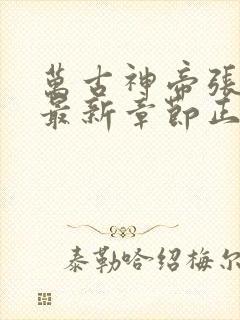 萬古神帝張
最新章節正
泰勒哈绍梅尔